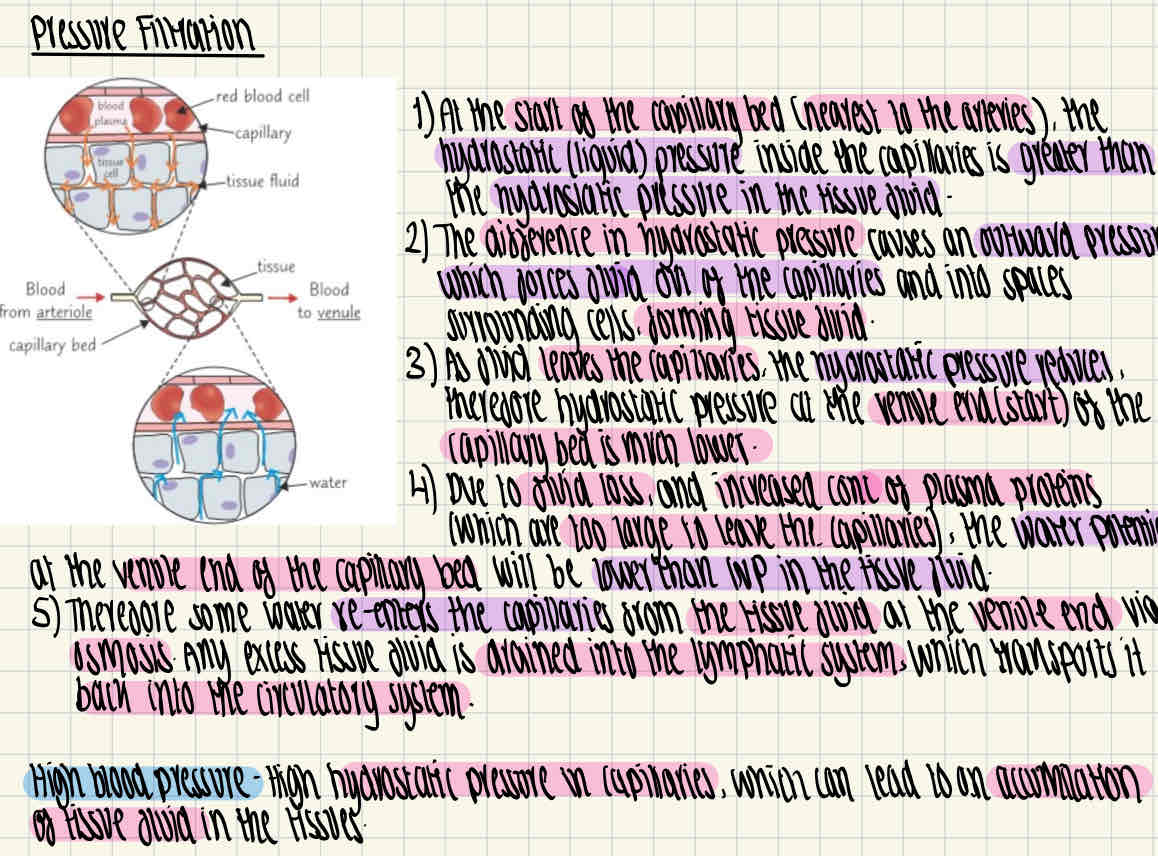 Pressure Filtration
red blood cell
blood
plasma
capillary
tissue
cell
tissue fluid
tissue
Blood
from arteriole
Blood
to venule
capillary bed
water
1) At the start of the capillary bed (nearest to the arteries), the
hydrostatic (liquid) pressure inside the capillaries is greater than
the hydrostatic pressure in the tissue fluid.
2) The difference in hydrostatic pressure causes an outward pressur
which forces fluid out of the capillaries and into spaces
surrounding cells, forming tissue fluid.
3) As fluid leaves the capillaries, the hydrostatic pressure reduces,
therefore hydrostatic pressure at the venule end (start) of the
capillary bed is much lower.
4) Due to fluid loss, and increased conc of plasma proteins
(which are too large to leave the capillaries), the water potenti
at the venule end of the capillary bed will be lower than WP in the tissue fluid.
5) Therefore some water re-enters the capillaries from the tissue fluid at the venule end via
osmosis. Any excess tissue fluid is drained into the lymphatic system, which transports it
back into the circulatory system.
High blood pressure - High hydrostatic pressure in capillaries, which can lead to an accumulation
of tissue fluid in the tissues.